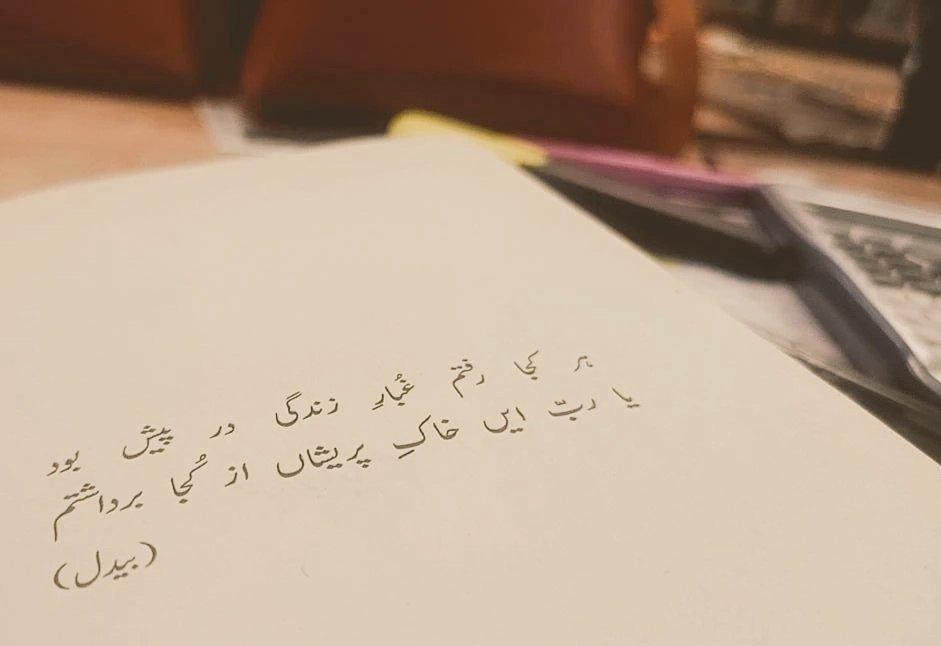 ہر کجا رفتم غُبارِ زندگی در پیش بود
یا ربّ ایں خاکِ پریشاں از کُجا برداشتم
(بیدل)